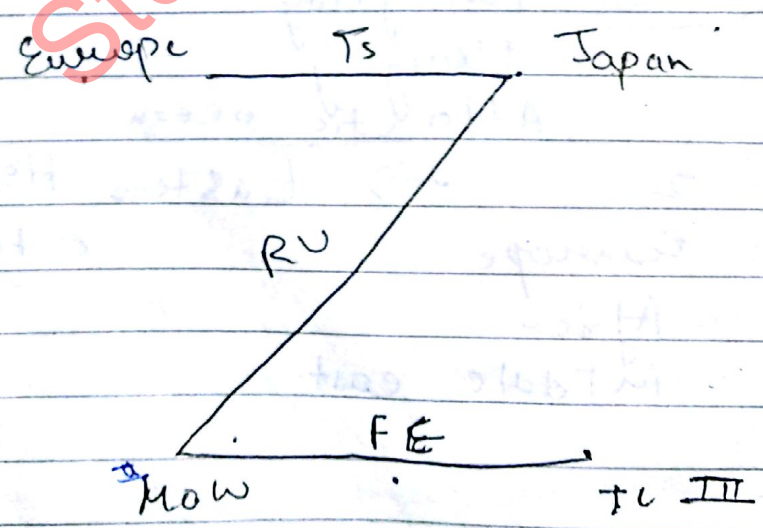 Europe Ts Japan
RU
FE
MOW TC III